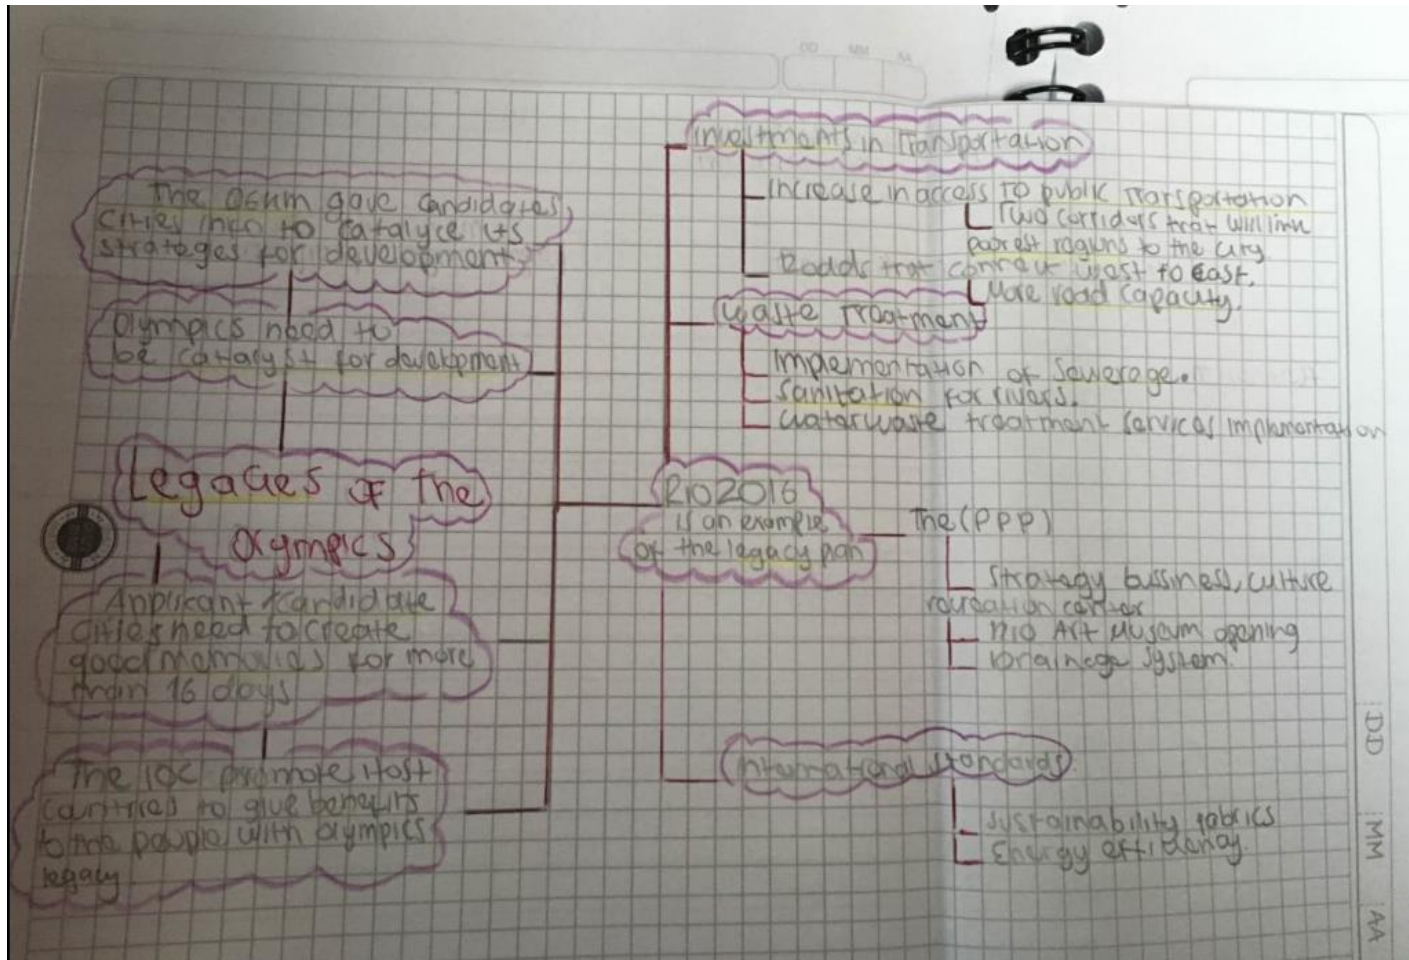 DD MM AA
The OGKM gave candidates,
cities info to catalyce its
strateges for development
Olympics need to
be catalyst for development
Legacies of the
Olympics
Applicant candidate
cities need to create
good memories for more
than 16 days
The IOC promote Host
countries to give benefits
to the people with olympics
legacy
Investments in Transportation
Increase in access to public Transportation
Two corridors that will link
poorest regiuns to the city
Roads that connect west to East.
More road capacity.
Waste Treatment
Implementation of Sewerage.
Sanitation for rivers.
Waterwaste treatment services implementation
Rio 2016
is an example
of the legacy plan
The (PPP)
Strategy bussiness, culture
recreation center
Rio Art Museum opening
Drainege system.
International standards
Sustainability fabrics
Energy efficiency.
DD
MM
AA